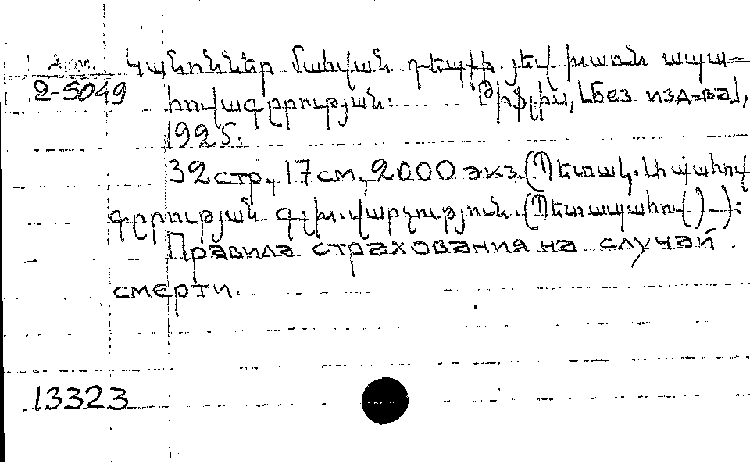 Арм.
2-5049
Կանոններ մահվան դեպքի յեվ խառն ապա=
հովագրության: Թիֆլիս, [без изд-ва],
1925.
32 стр., 17 см, 2000 экз. (Պետակ.
գրության գլխ. վարչություն. (Պետապահով)-):
Правила страхования на случай
смерти.
13323